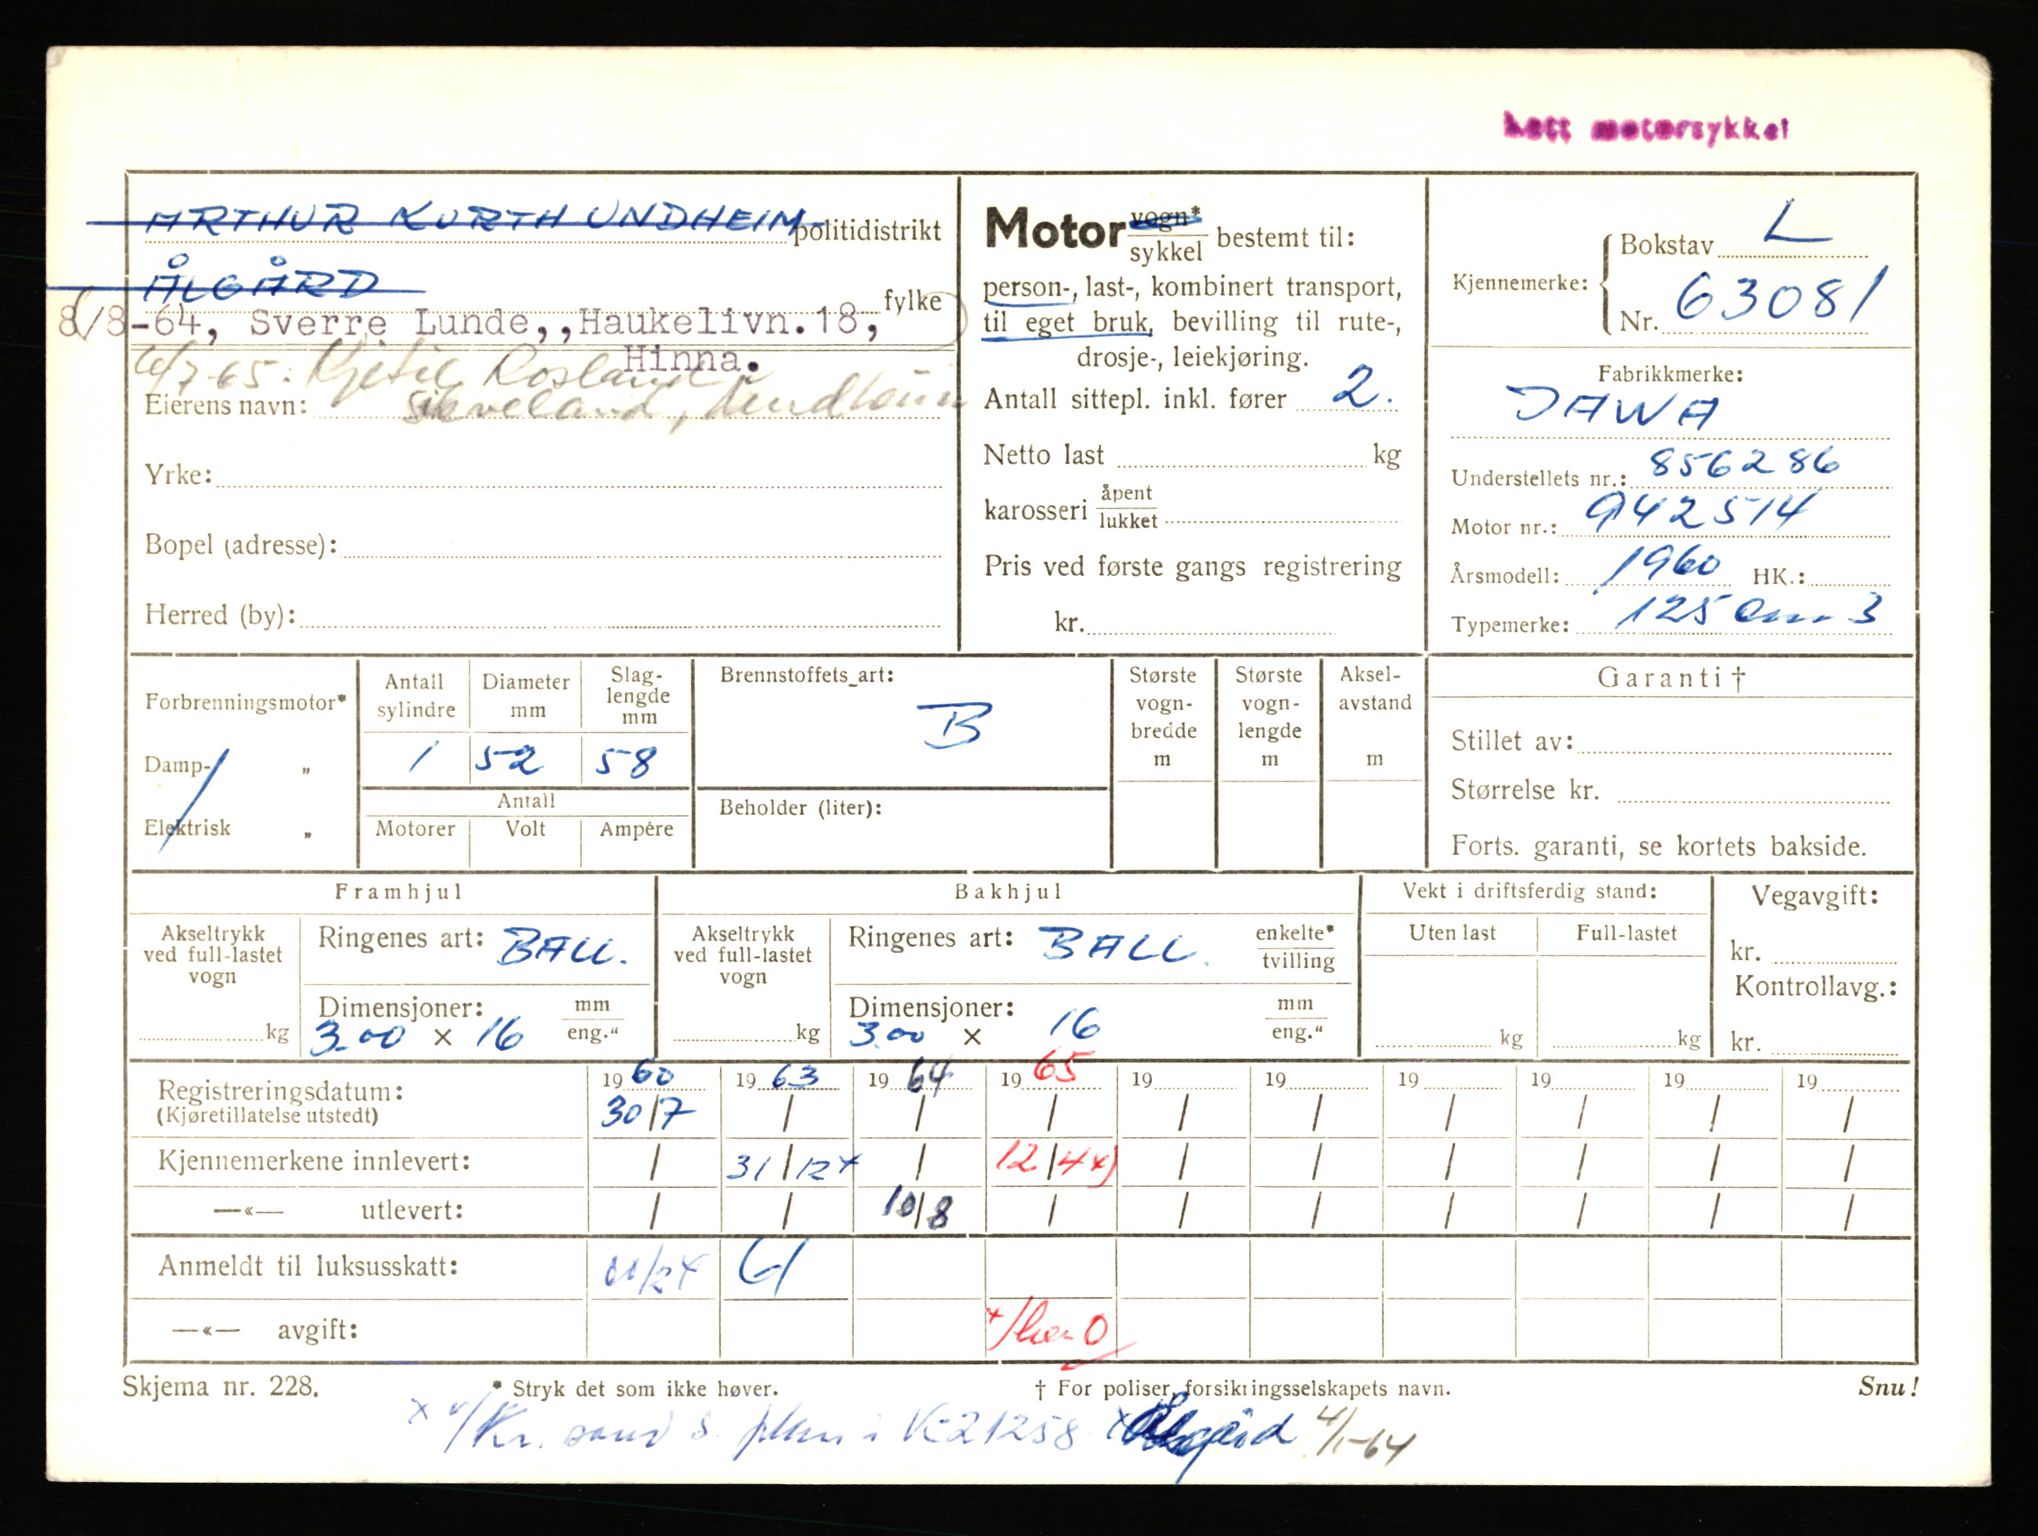 Lett motorsykkel
ARTHUR KURTH UNDHEIM politidistrikt
ÅLGÅRD fylke
8/8-64, Sverre Lunde,,Haukelivn.18,
Hinna.
6/7-65. Kjetil Rosland
Eierens navn:
Yrke:
Bopel (adresse):
Herred (by):
Motor vogn* / sykkel bestemt til:
person-, last-, kombinert transport,
til eget bruk, bevilling til rute-,
drosje-, leiekjøring.
Antall sittepl. inkl. fører 2.
Netto last kg
karosseri åpent / lukket
Pris ved første gangs registrering
kr.
Kjennemerke: Bokstav L
Nr. 63081
Fabrikkmerke:
JAWA
Understellets nr.: 856286
Motor nr.: 942514
Årsmodell: 1960 HK.:
Typemerke: 125 cm3
Forbrenningsmotor*
Damp- „
Elektrisk „
Antall sylindre Diameter mm Slag-lengde mm
1 52 58
Antall
Motorer Volt Ampére
Brennstoffets art:
B
Beholder (liter):
Største vogn-bredde m
Største vogn-lengde m
Aksel-avstand m
Garanti †
Stillet av:
Størrelse kr.
Forts. garanti, se kortets bakside.
Framhjul
Akseltrykk ved full-lastet vogn kg
Ringenes art: BALL.
Dimensjoner: mm / eng."
3.00 × 16
Bakhjul
Akseltrykk ved full-lastet vogn kg
Ringenes art: BALL. enkelte* / tvilling
Dimensjoner: mm / eng."
3.00 × 16
Vekt i driftsferdig stand:
Uten last Full-lastet
kg kg
Vegavgift:
kr.
Kontrollavg.:
kr.
Registreringsdatum: 1960 1963 1964 1965 19 19 19 19 19 19
(Kjøretillatelse utstedt) 30/7 / / / / / / / / /
Kjennemerkene innlevert: / 31/12 x / 12/4 x) / / / / / /
—«— utlevert: / / 10/8 / / / / / / /
Anmeldt til luksusskatt:
—«— avgift:
Skjema nr. 228. * Stryk det som ikke høver. † For poliser, forsikringsselskapets navn. Snu!
K-21258 4/1-64